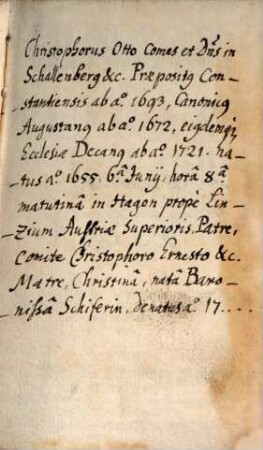 Christophorus Otto Comes et Dn̄s in
Schallenberg &c. Præpositꝯ Con-
stantiensis ab aº. 1693, Canonicꝯ
Augustanꝯ ab aº. 1672, eiꝯdemqꝫ
Ecclesiæ Decanꝯ ab aº. 1721. na-
tus aº. 1655. 6tâ Junij, horâ 8â
matutinâ in Hagen propè Lin-
zium Austriæ Superioris, Patre,
Comite Christophoro Ernesto &c.
Matre, Christinâ, natâ Baro-
nissâ Schiferin, denatus aº. 17....